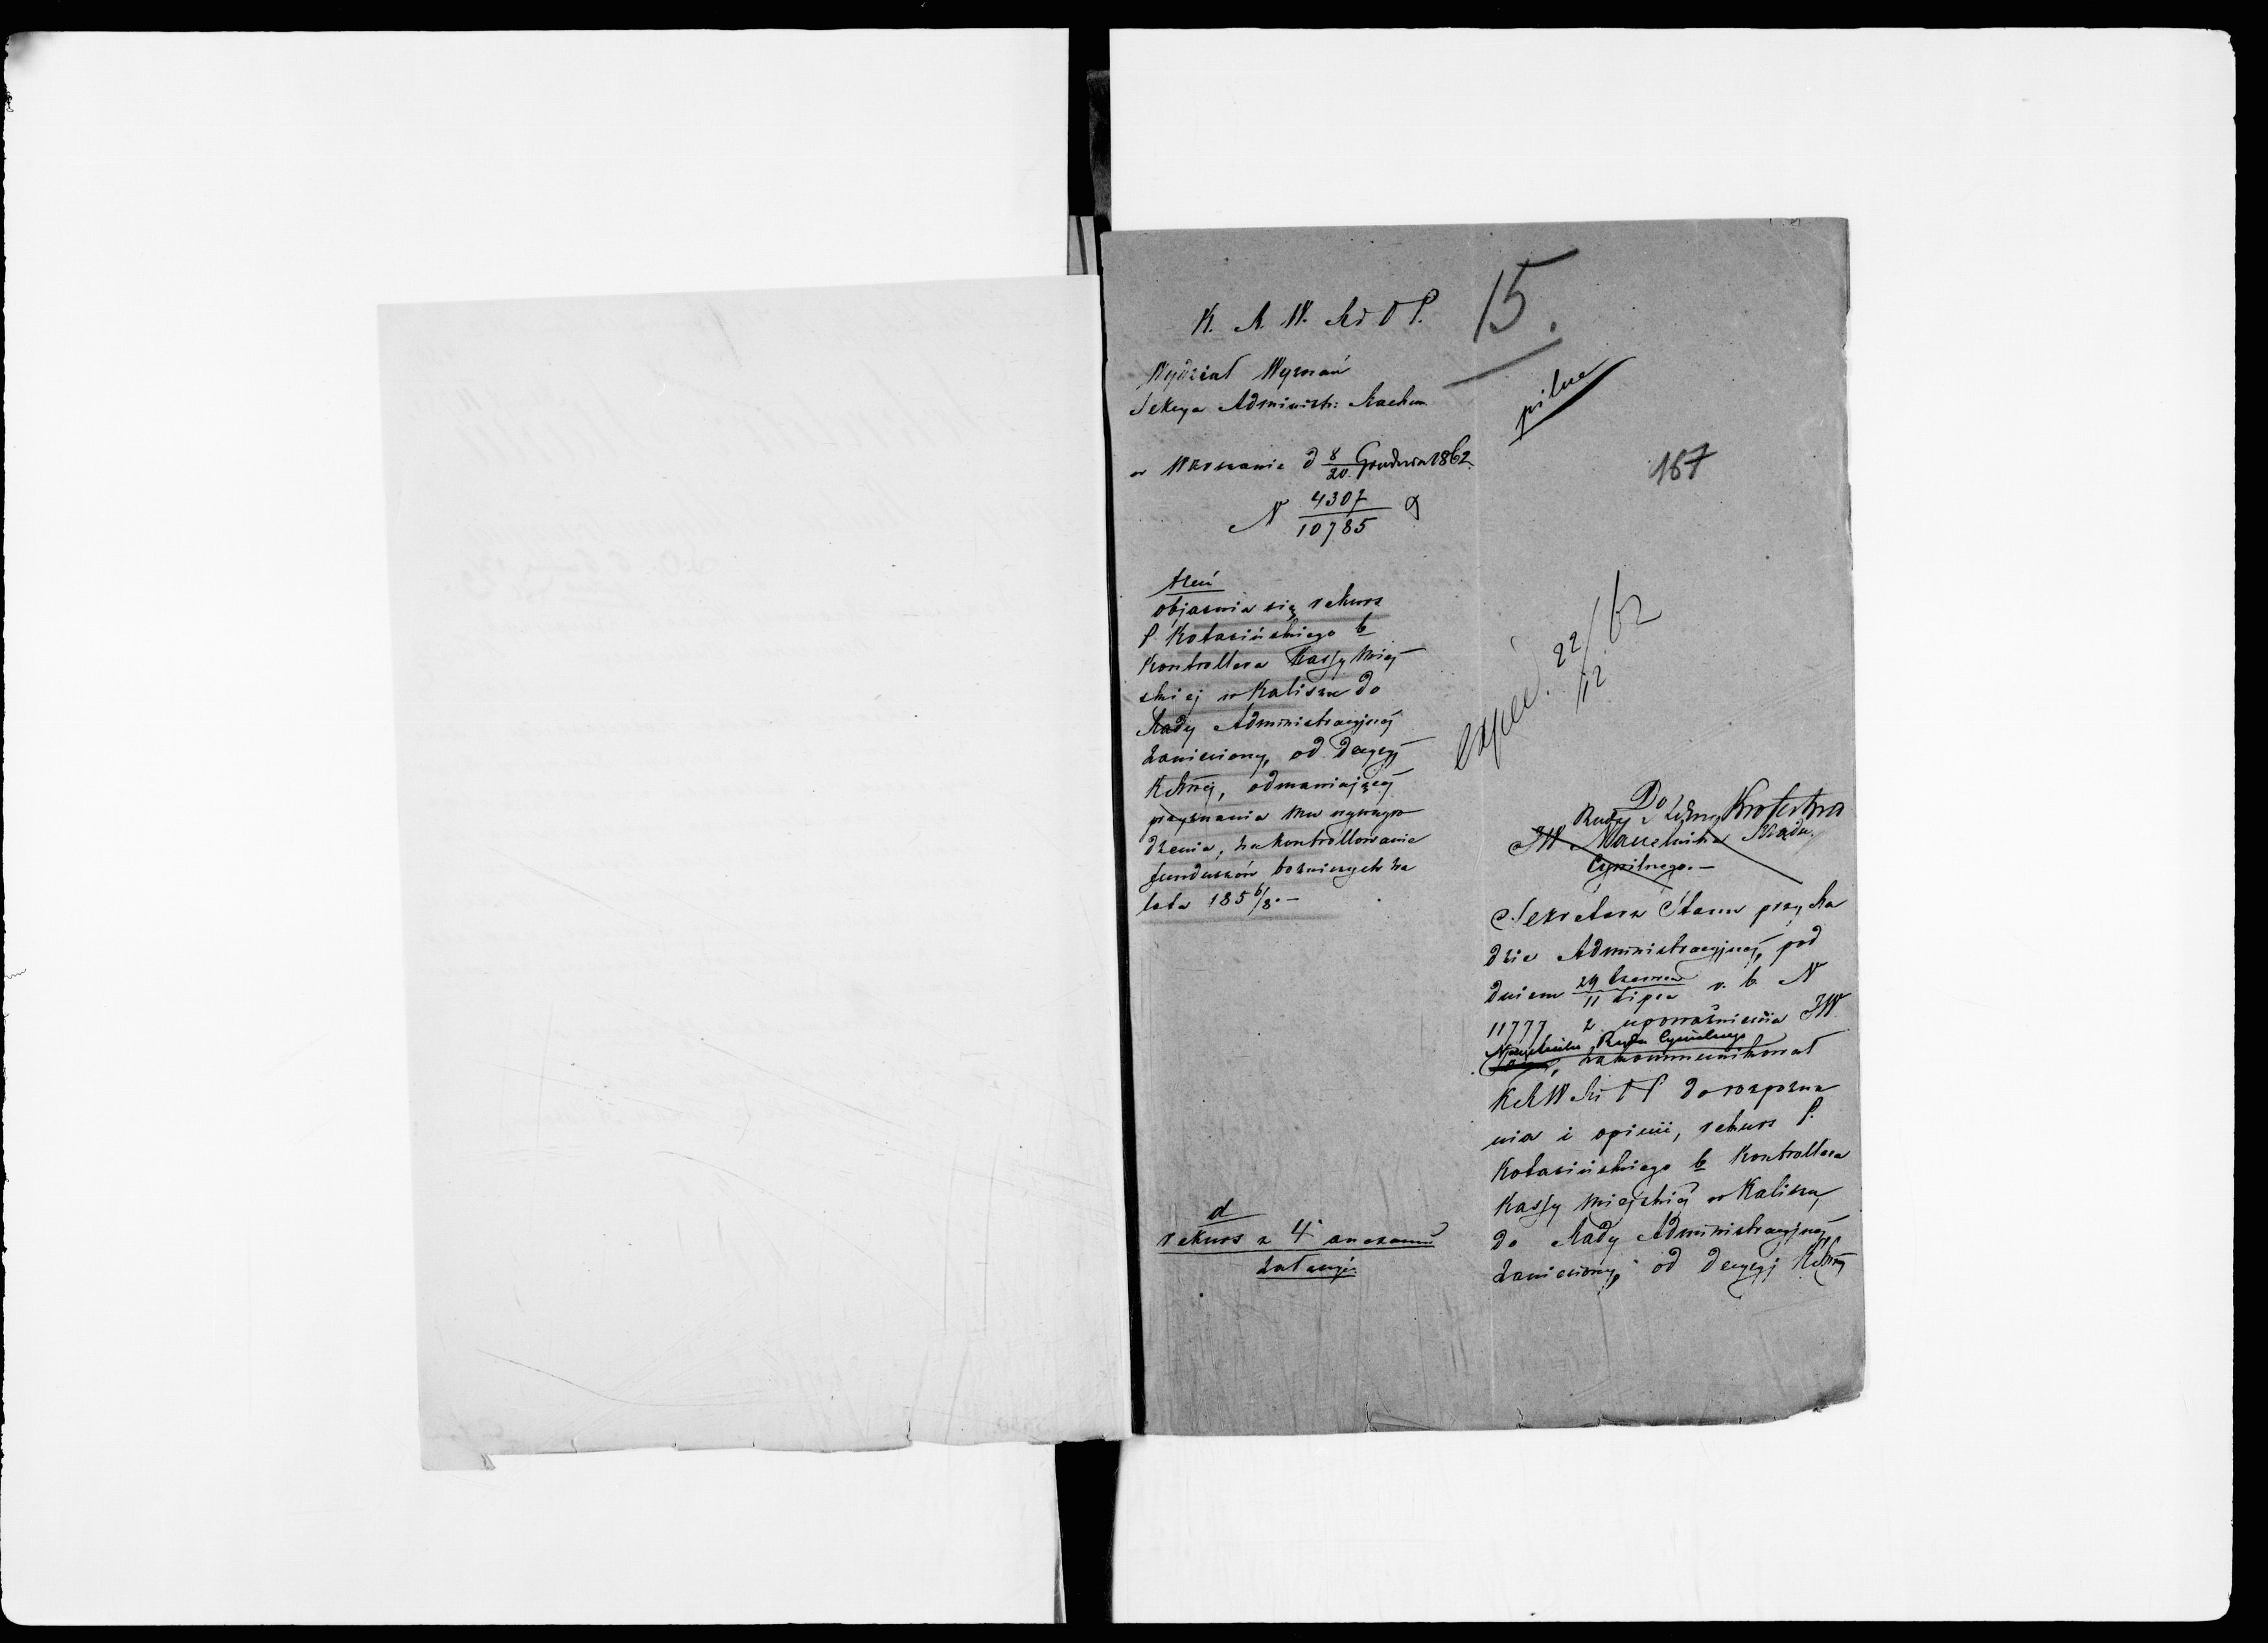 15.
K. R. W. R i O P.
Wydział Wyznań
Sekcya Administr: Rachun
pilne
w Warszawie d 8/20 Grudnia 1862
167
N 4307/10785
treść
objaśnia się rekurs
P. Kotasińskiego b
Kontrollera Kassy Miej
skiej w Kaliszu do
Rady Administracyjnej
zaniesiony, od decyzyi
Kktnéj, odmawiającej
przyznania mu wynagro
dzenia, za kontrollowanie
funduszów bożniczych za
lata 185 6/8. —
exped. 22/12 62
Do
Rady Królestwa
JW Naczelnika Rządu
Cywilnego. —
Sekretarz Stanu przy Ra
dzie Administracyjnej, pod
dniem 29 Czerwca/11 Lipca r. b. N
11777 z upoważnienia JW
Naczelnika Rządu Cywilnego
zakommunikował
K R W R i O P do rozpozna
nia i opinii, rekurs P.
Kotasińskiego b Kontrollera
Kassy Miejskiej w Kaliszu,
do Rady Administracyjnej
zaniesiony, od decyzyi
d
rekurs z 4 anexami
załączyć.